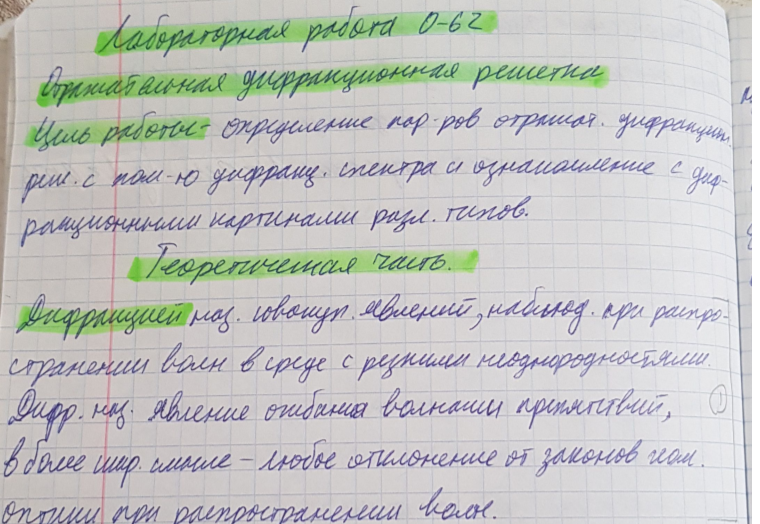 Лабораторная работа О-62
Отражательная дифракционная решетка
Цель работы- определение пар-ров отражат. дифракцион.
реш. с пом-ю дифракц. спектра и ознакомление с диф-
ракционными картинами разл. типов.
Теоретическая часть.
Дифракцией наз. совокуп. явлений, наблюд. при распро-
странении волн в среде с резкими неоднородностями.
Дифр. наз. явление огибания волнами препятствий, 1
в более шир. смысле – любое отклонение от законов геом.
оптики при распространении волн.